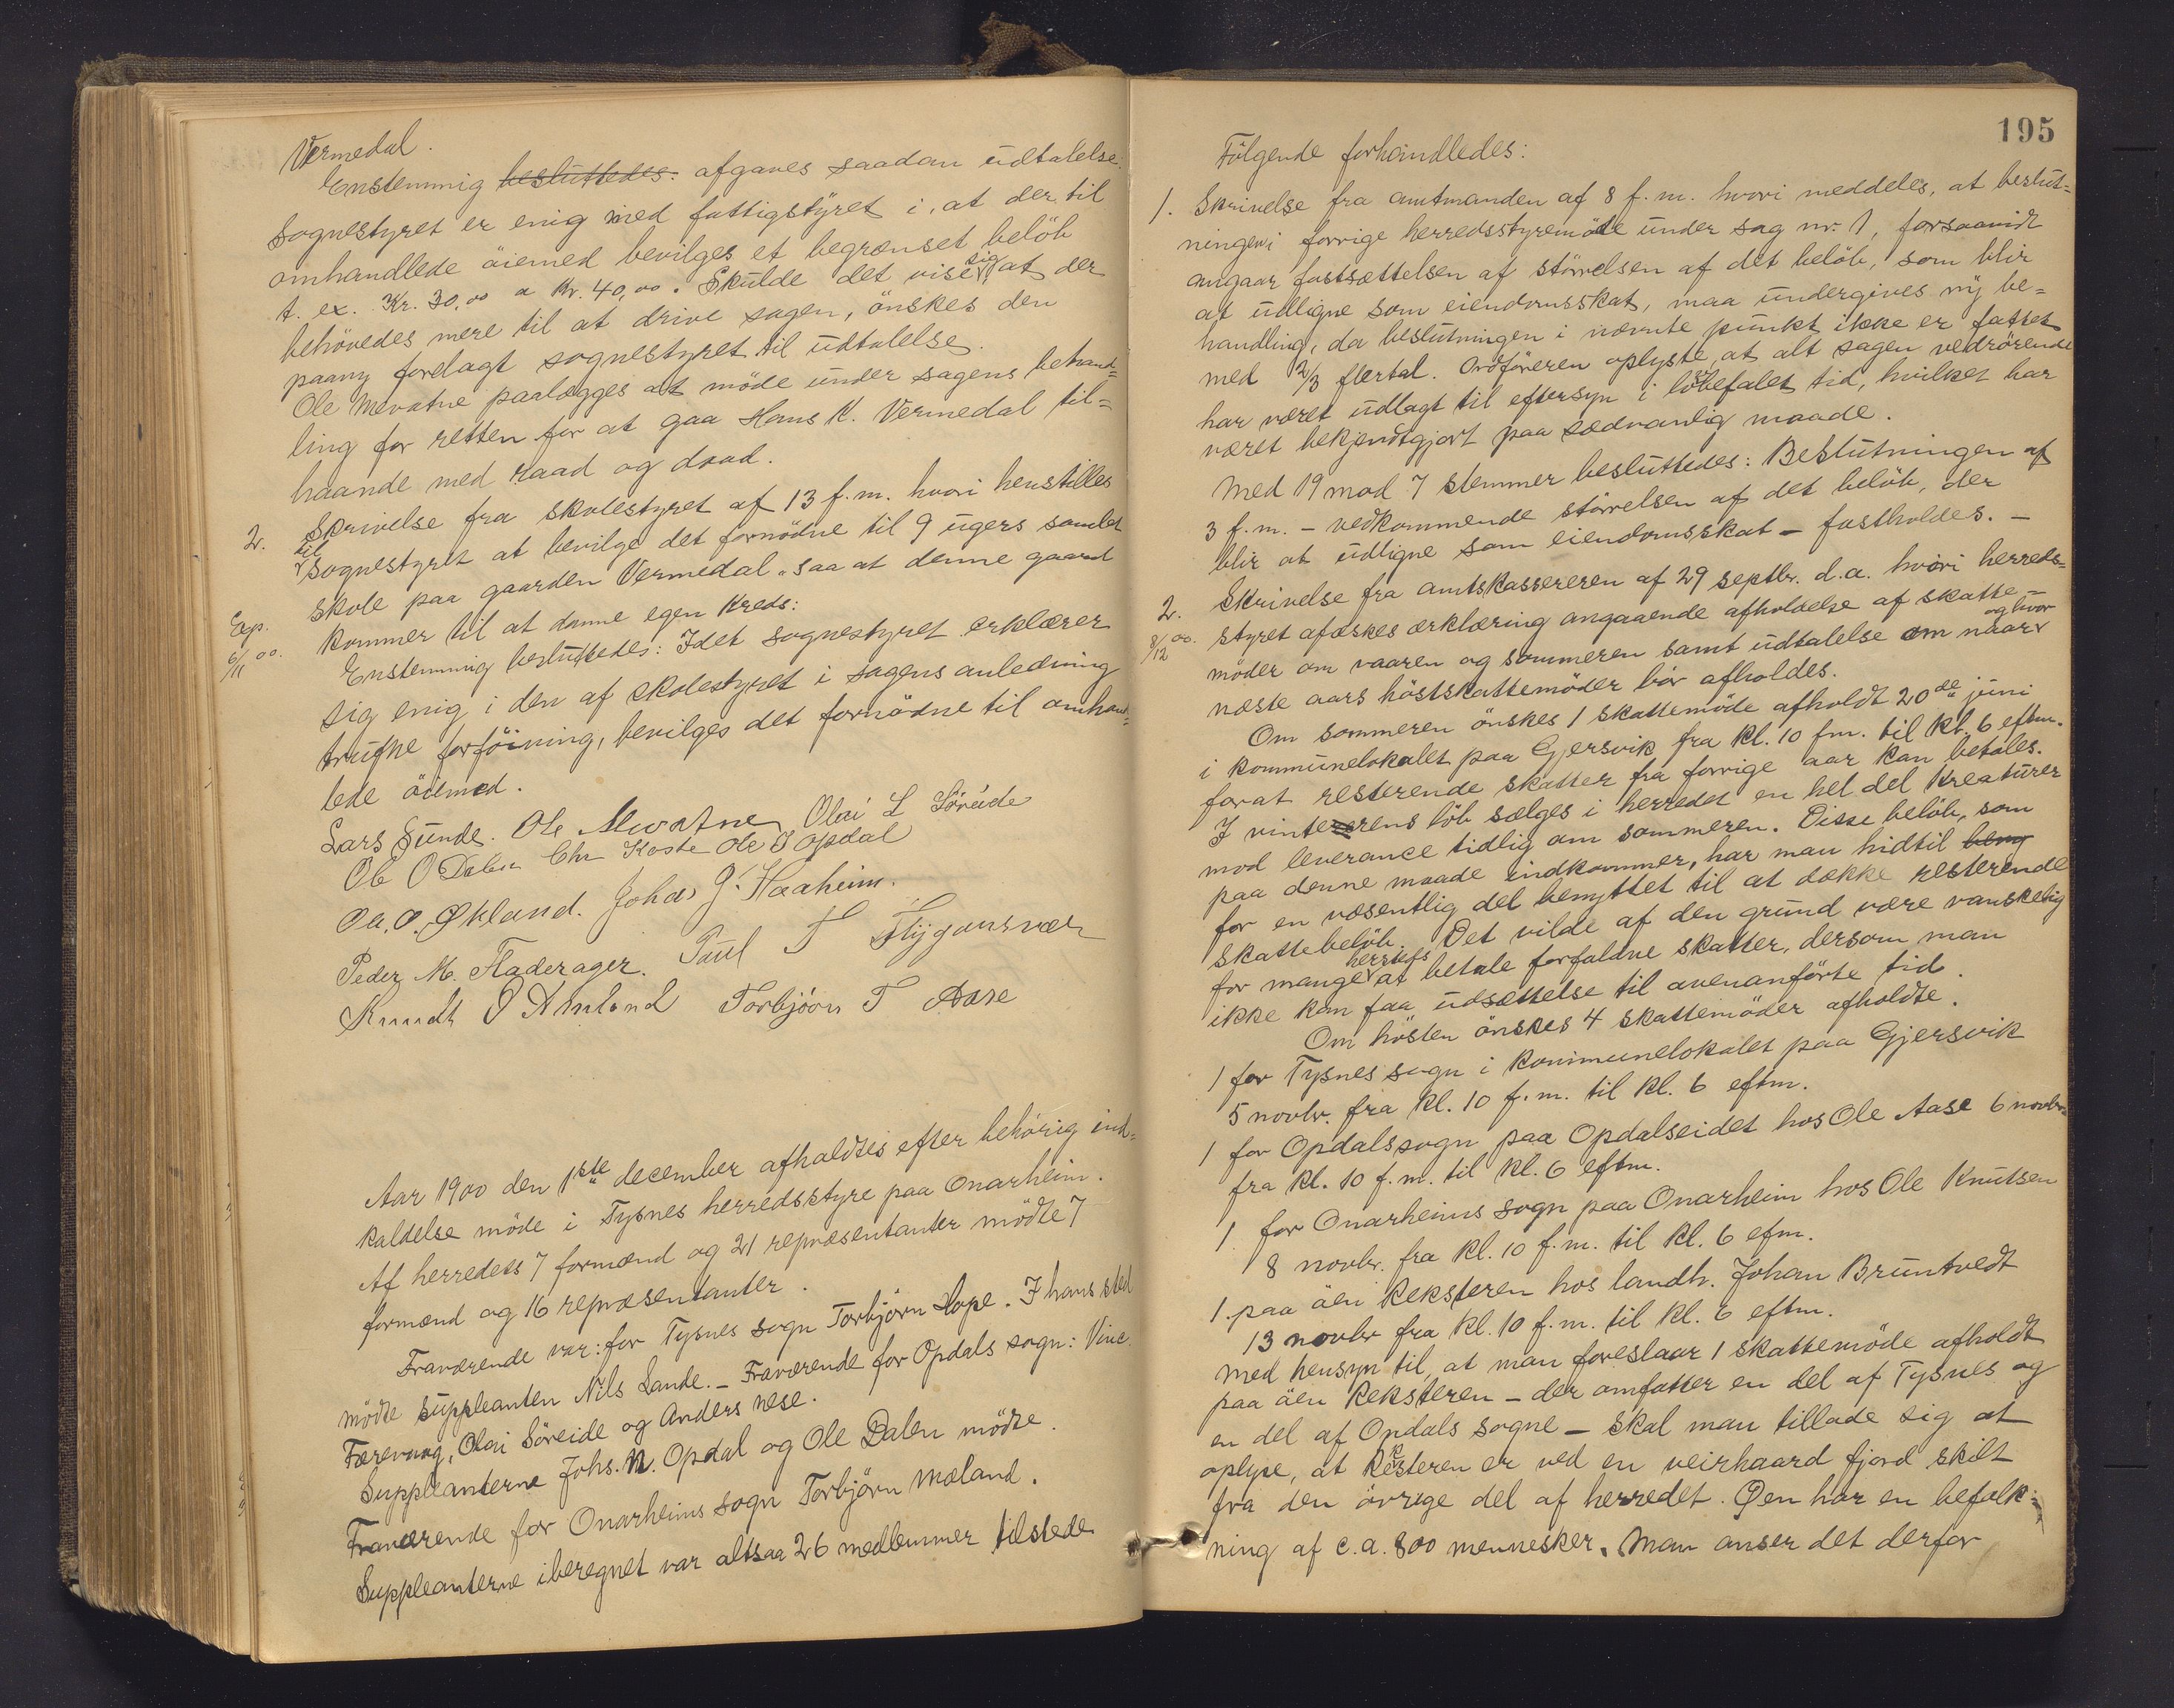 Vermedal.
Enstemmig besluttedes: afgaves saadan udtalelse:
Sognestyret er enig med fattigstyret i, at der til
omhandlede øiemed bevilges et begrænset beløb
t. ex. Kr. 30,00 a Kr. 40,00. Skulde det vise sig at der
behøvedes mere til at drive sagen, ønskes den
paany forelagt sognestyret til udtalelse.
Ole Mevatne paalægges at møde under sagens behand=
ling for retten for at gaa Hans K. Vermedal til=
haande med raad og daad.
2. Skrivelse fra skolestyret af 13 f.m. hvori henstilles
til sognestyret at bevilge det fornødne til 9 ugers samlet
skole paa gaarden Vermedal, saa at denne gaard
Exp. kommer til at danne egen kreds:
6/11 00. Enstemmig besluttedes: Idet sognestyret erklærer
sig enig i den af skolestyret i sagens anledning
trufne forføining, bevilges det fornødne til omhand=
lede øiemed.
Lars Sunde. Ole Mevatne Olai L Søreide
Ole O Dalen Chr Koste Ole J Opdal
Oa. O. Økland. Johas J. Haaheim.
Peder M. Fladerager. Paul T Flygansvær
Knudt O Amland Torbjørn T Aase
Aar 1900 den 1ste december afholdtes efter behørig ind=
kaldelse møde i Tysnes herredsstyre paa Onarheim.
Af herredets 7 formænd og 21 repræsentanter mødte 7
formænd og 16 repræsentanter.
Fraværende var: for Tysnes sogn Torbjørn Hope. I hans sted
mødte suppleanten Nils Lande. – Fraværende for Opdals sogn: Vinc.
Færevaag, Olai Søreide og Anders Nese.
Suppleanterne Johs. N. Opdal og Ole Dalen mødte.
Fraværende for Onarheims sogn Torbjørn Mæland.
Suppleanterne iberegnet var altsaa 26 medlemmer tilstede
195
Følgende forhandledes:
1. Skrivelse fra amtmanden af 8 f.m. hvori meddeles, at beslut=
ningen i forrige herredsstyremøde under sag nr. 1, forsaavidt
angaar fastsættelsen af størrelsen af det beløb, som blir
at udligne som eiendomsskat, maa undergives ny be=
handling, da beslutningen i nævnte punkt ikke er fattet
med 2/3 flertal. Ordføreren oplyste, at alt sagen vedrørende
har været udlagt til eftersyn i lovbefalet tid, hvilket har
været bekjendtgjort paa sædvanlig maade.
Med 19 mod 7 stemmer besluttedes: Beslutningen af
3 f.m. – vedkommende størrelsen af det beløb, der
blir at udligne som eiendomsskat – fastholdes. –
2. Skrivelse fra amtskassereren af 29 septbr. d.a. hvori herreds=
8/12 00. styret afæskes erklæring angaaende afholdelse af skatte=
møder om vaaren og sommeren samt udtalelse om naar og hvor
næste aars høstskattemøder bør afholdes.
Om sommeren ønskes 1 skattemøde afholdt 20de juni
i kommunelokalet paa Gjersvik fra kl. 10 fm. til kl. 6 eftm.
forat resterende skatter fra forrige aar kan betales.
I vintererens løb sælges i herredet en hel del kreaturer
mod leverance tidlig om sommeren. Disse beløb, som
paa denne maade indkommer, har man hidtil beny
for en væsentlig del benyttet til at dække resterende
skattebeløb. Det vilde af den grund være vanskelig
for mange herstefs at betale forfaldne skatter, dersom man
ikke kan faa udsættelse til ovenanførte tid.
Om høsten ønskes 4 skattemøder afholdte.
1 for Tysnes sogn i kommunelokalet paa Gjersvik
5 novbr. fra kl. 10 f.m. til kl. 6 eftm.
1 for Opdals sogn paa Opdalseidet hos Ole Aase 6 novbr.
fra kl. 10 f.m. til kl. 6 eftm.
1 for Onarheims sogn paa Onarheim hos Ole Knutsen
8 novbr. fra kl. 10 f.m. til kl. 6 efm.
1. paa øen Reksteren hos landh. Johan Bruntvedt
13 novbr fra kl. 10 f.m. til kl. 6 eftm.
Med hensyn til, at man foreslaar 1 skattemøde afholdt
paa øen Reksteren – der omfatter en del af Tysnes og
en del af Opdals sogne – skal man tillade sig at
oplyse, at Reksteren er ved en veirhaard fjord skilt
fra den øvrige del af herredet. Øen har en befolk=
ning af c.a. 800 mennesker. Man anser det derfor